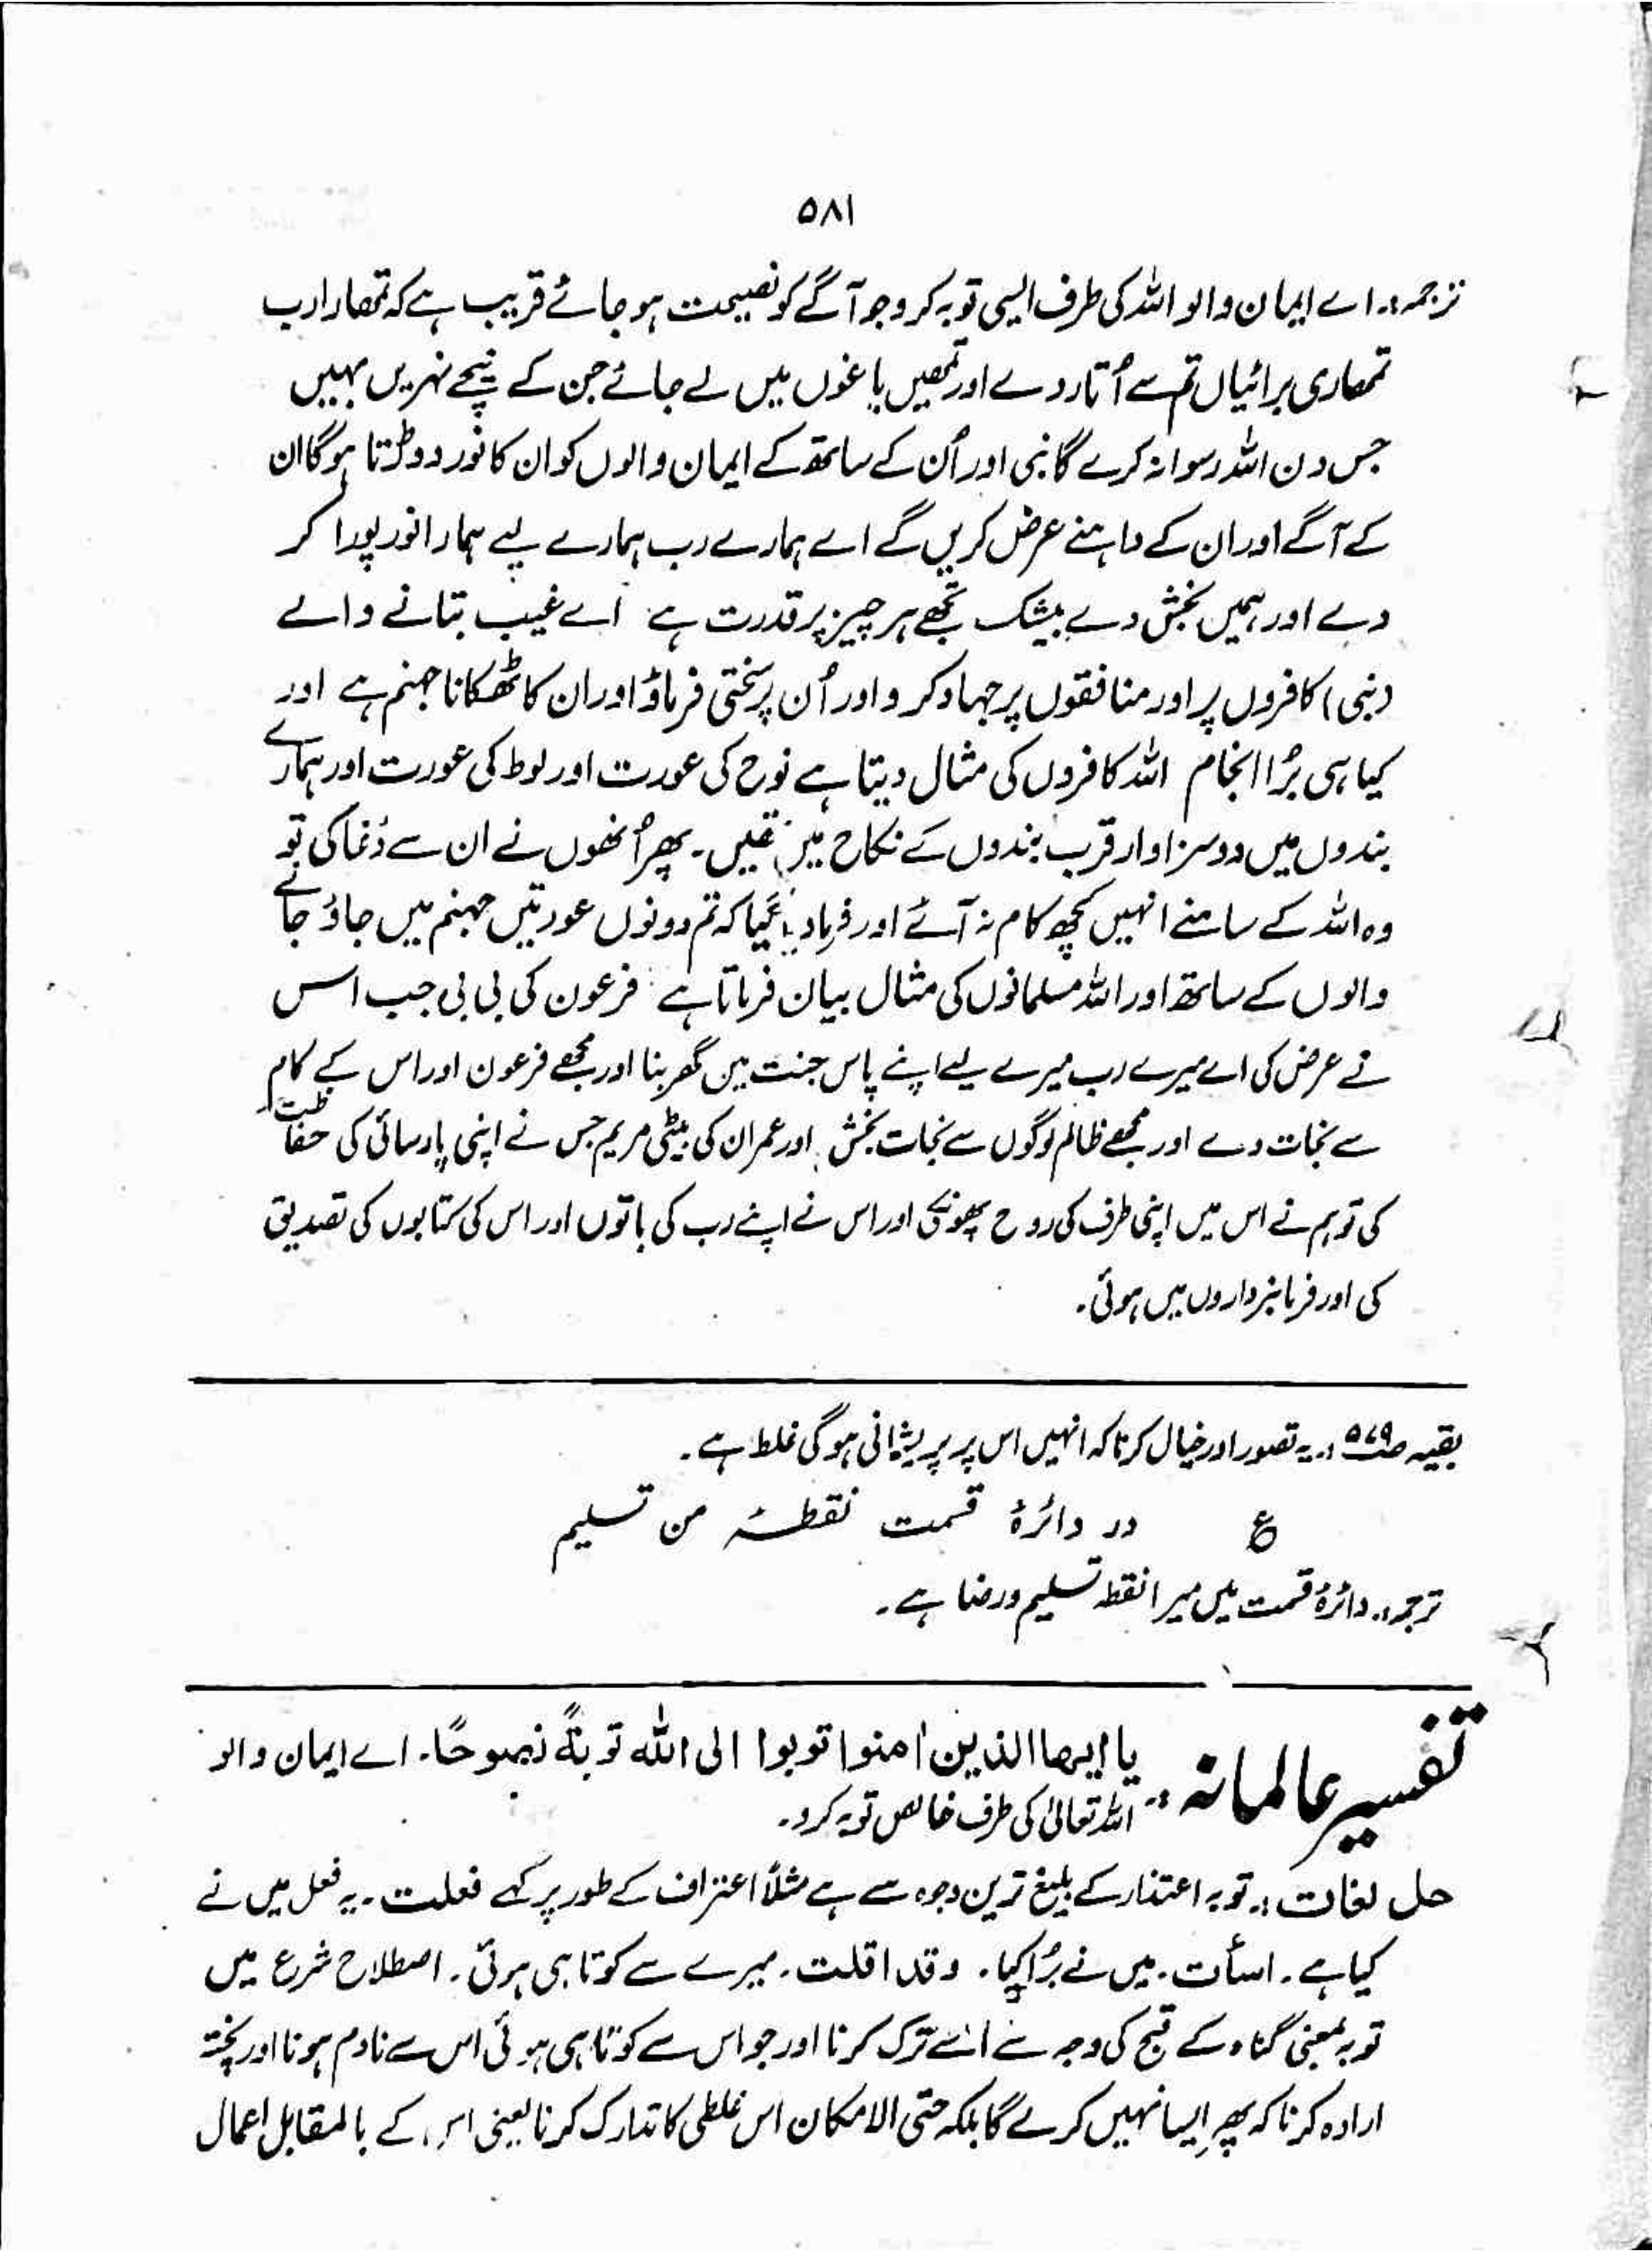 ۵۸۱
ترجمہ:۔ اے ایمان والو اللہ کی طرف ایسی توبہ کرو جو آگے کو نصیحت ہو جائے قریب ہے کہ تمھارا رب
تمھاری برائیاں تم سے اُتار دے اور تمھیں باغوں میں لے جائے جن کے نیچے نہریں بہیں
جس دن اللہ رسوا نہ کرے گا نبی اور اُن کے ساتھ کے ایمان والوں کو ان کا نور دوڑتا ہوگا ان
کے آگے اور ان کے داہنے عرض کریں گے اے ہمارے رب ہمارے لیے ہمارا نور پورا کر
دے اور ہمیں بخش دے بیشک تجھے ہر چیز پر قدرت ہے اے غیب بتانے والے
(نبی) کافروں پر اور منافقوں پر جہاد کرو اور اُن پر سختی فرماؤ اور ان کا ٹھکانا جہنم ہے اور
کیا ہی بُرا انجام اللہ کافروں کی مثال دیتا ہے نوح کی عورت اور لوط کی عورت اور ہمارے
بندوں میں دو سزاوار قرب بندوں کے نکاح میں تھیں۔ پھر اُنھوں نے ان سے دَغا کی تو
وہ اللہ کے سامنے انہیں کچھ کام نہ آئے اور فرما دیا گیا کہ تم دونوں عورتیں جہنم میں جاؤ جانے
والوں کے ساتھ اور اللہ مسلمانوں کی مثال بیان فرماتا ہے فرعون کی بی بی جب اس
نے عرض کی اے میرے رب میرے لیے اپنے پاس جنت میں گھر بنا اور مجھے فرعون اور اس کے کام
سے نجات دے اور مجھے ظالم لوگوں سے نجات بخش اور عمران کی بیٹی مریم جس نے اپنی پارسائی کی حفاظت
کی تو ہم نے اس میں اپنی طرف کی روح پھونکی اور اس نے اپنے رب کی باتوں اور اس کی کتابوں کی تصدیق
کی اور فرمانبرداروں میں ہوئی۔
بقیہ ص ۵۷۹:۔ یہ تصور اور خیال کرنا کہ انہیں اس پر پریشانی ہوگی غلط ہے۔
ع در دائرۂ قسمت نقطۂ من تسلیم
ترجمہ:۔ دائرۂ قسمت میں میرا نقطہ تسلیم و رضا ہے۔
تفسیر عالمانہ:۔ یا ایھا الذین اٰمنوا توبوا الی اللّٰہ توبةً نصوحًا۔ اے ایمان والو
اللہ تعالیٰ کی طرف خالص توبہ کرو۔
حل لغات:۔ توبہ اعتذار کے بلیغ ترین وجوہ سے ہے مثلاً اعتراف کے طور پر کہے فعلت۔ یہ فعل میں نے
کیا ہے۔ اسأت۔ میں نے بُرا کیا۔ وقد اقلت۔ میرے سے کوتاہی ہوئی۔ اصطلاح شرع میں
توبہ بمعنی گناہ کے قبح کی وجہ سے اسے ترک کرنا اور جو اس سے کوتاہی ہوئی اس سے نادم ہونا اور پختہ
ارادہ کرنا کہ پھر ایسا نہیں کرے گا بلکہ حتی الامکان اس غلطی کا تدارک کرنا یعنی اس کے بالمقابل اعمال